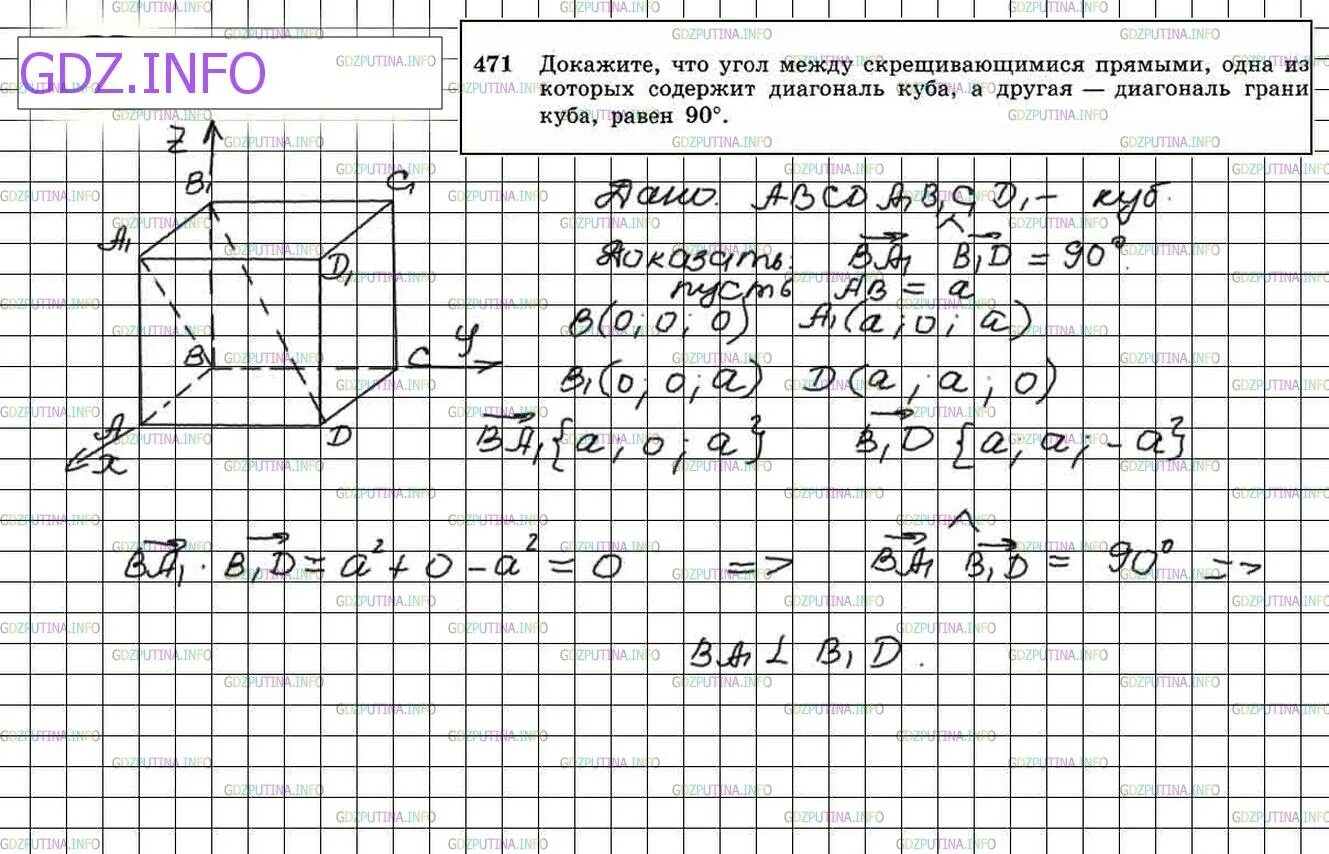 GDZ.INFO
471 Докажите, что угол между скрещивающимися прямыми, одна из
которых содержит диагональ куба, а другая — диагональ грани
куба, равен 90°.
Z
B₁
C₁
A₁
D₁
B
C
y
A
D
x
Дано. ABCDA₁B₁C₁D₁ – куб.
Доказать: BA₁ ^ B₁D = 90°.
пусть AB = a
B(0; 0; 0) A₁(a; 0; a)
B₁(0; 0; a) D(a; a; 0)
BA₁{a; 0; a} B₁D{a; a; -a}
BA₁ · B₁D = a² + 0 - a² = 0 => BA₁ ^ B₁D = 90° =>
BA₁ ⊥ B₁D.
GDZPUTINA.INFO